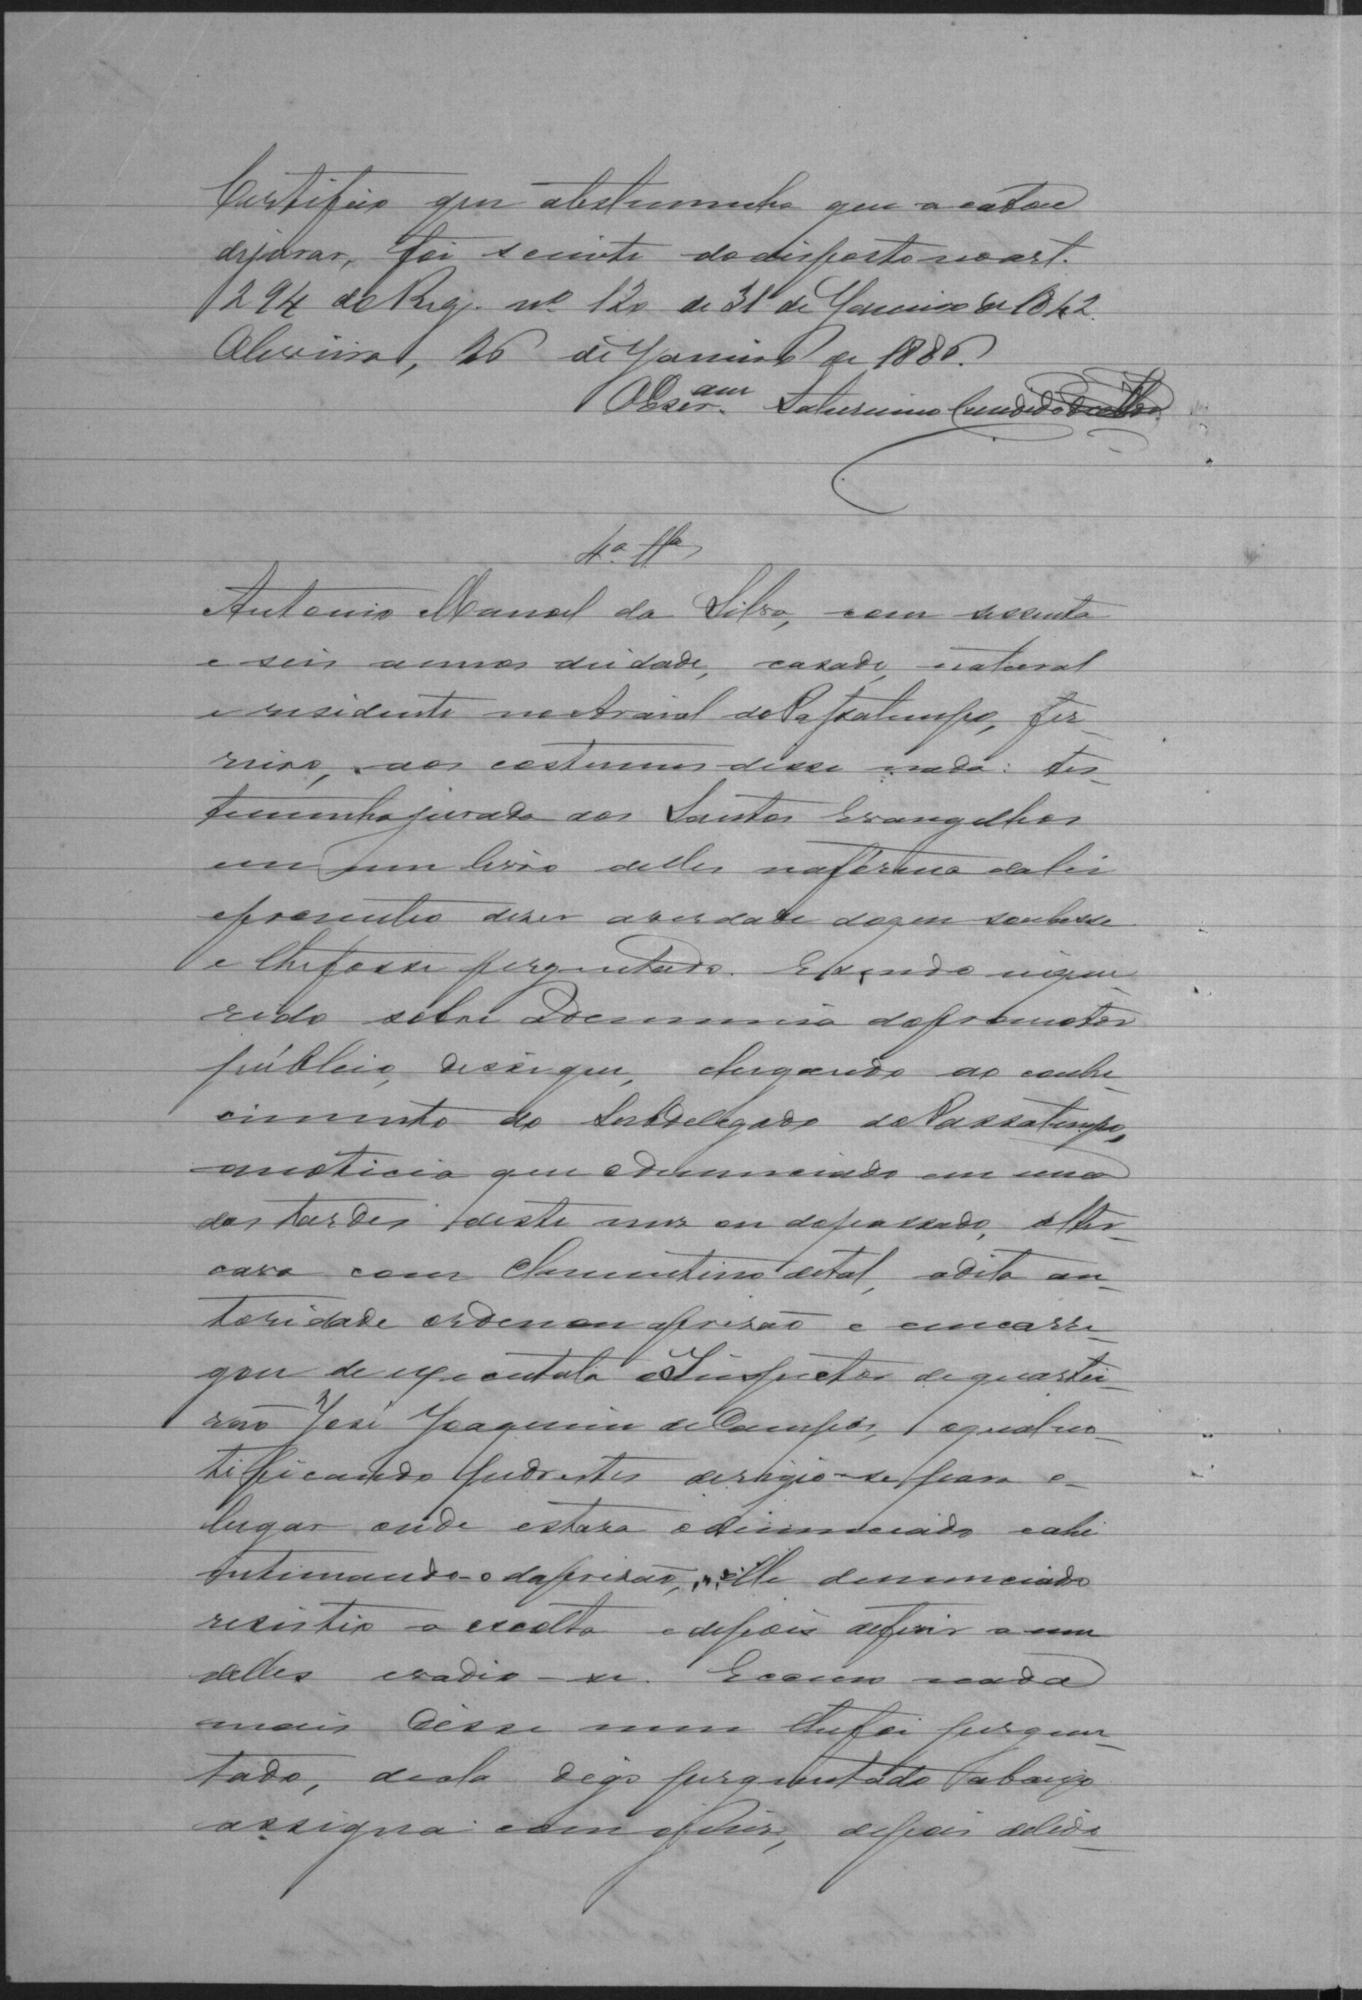 Certifico que atestemunha que acaba de
depôrar, foi sciente do disposto no art.
294 do Reg. nº 120 de 31 de Janeiro de 1842.
Oliveira, 26 de Janeiro de 1886.
O Escr.am Saturnino Candido
4ª Tta
Antonio Manoel da Silva, com sessenta
e seis annos deidade, casado, natural
e residente no Arraial do Passatempo, fer-
reiro, aos costumes disse nada: tes-
temunha jurada aos Santos Evangelhos
em um livro delles na fórma da lei
e prometteo dizer a verdade doque soubesse
e lhe fosse perguntado. E sendo inque-
rido sobre a denuncia do promotor
público, disse que, chegando ao conhe-
cimento do Subdelegado do Passatempo,
a noticia que o denunciado em uma
das tardes deste mez ou do passado, alter-
cava com Clementino detal, a dita au-
toridade ordenou a prisão e encarre-
gou de executala o Inspector de quartei-
rão José Joaquim de Campos, o qual no-
tificando pedrestes derigio-se para o
lugar onde estava o denunciado e ahi
intimando-o da prisão, elle denunciado
resistio a escolta e depois de ferir a um
delles evadio-se. E como nada
mais disse nem lhe foi pergun-
tado, digo perguntado abaixo
assigna com o Juiz, depois de lido